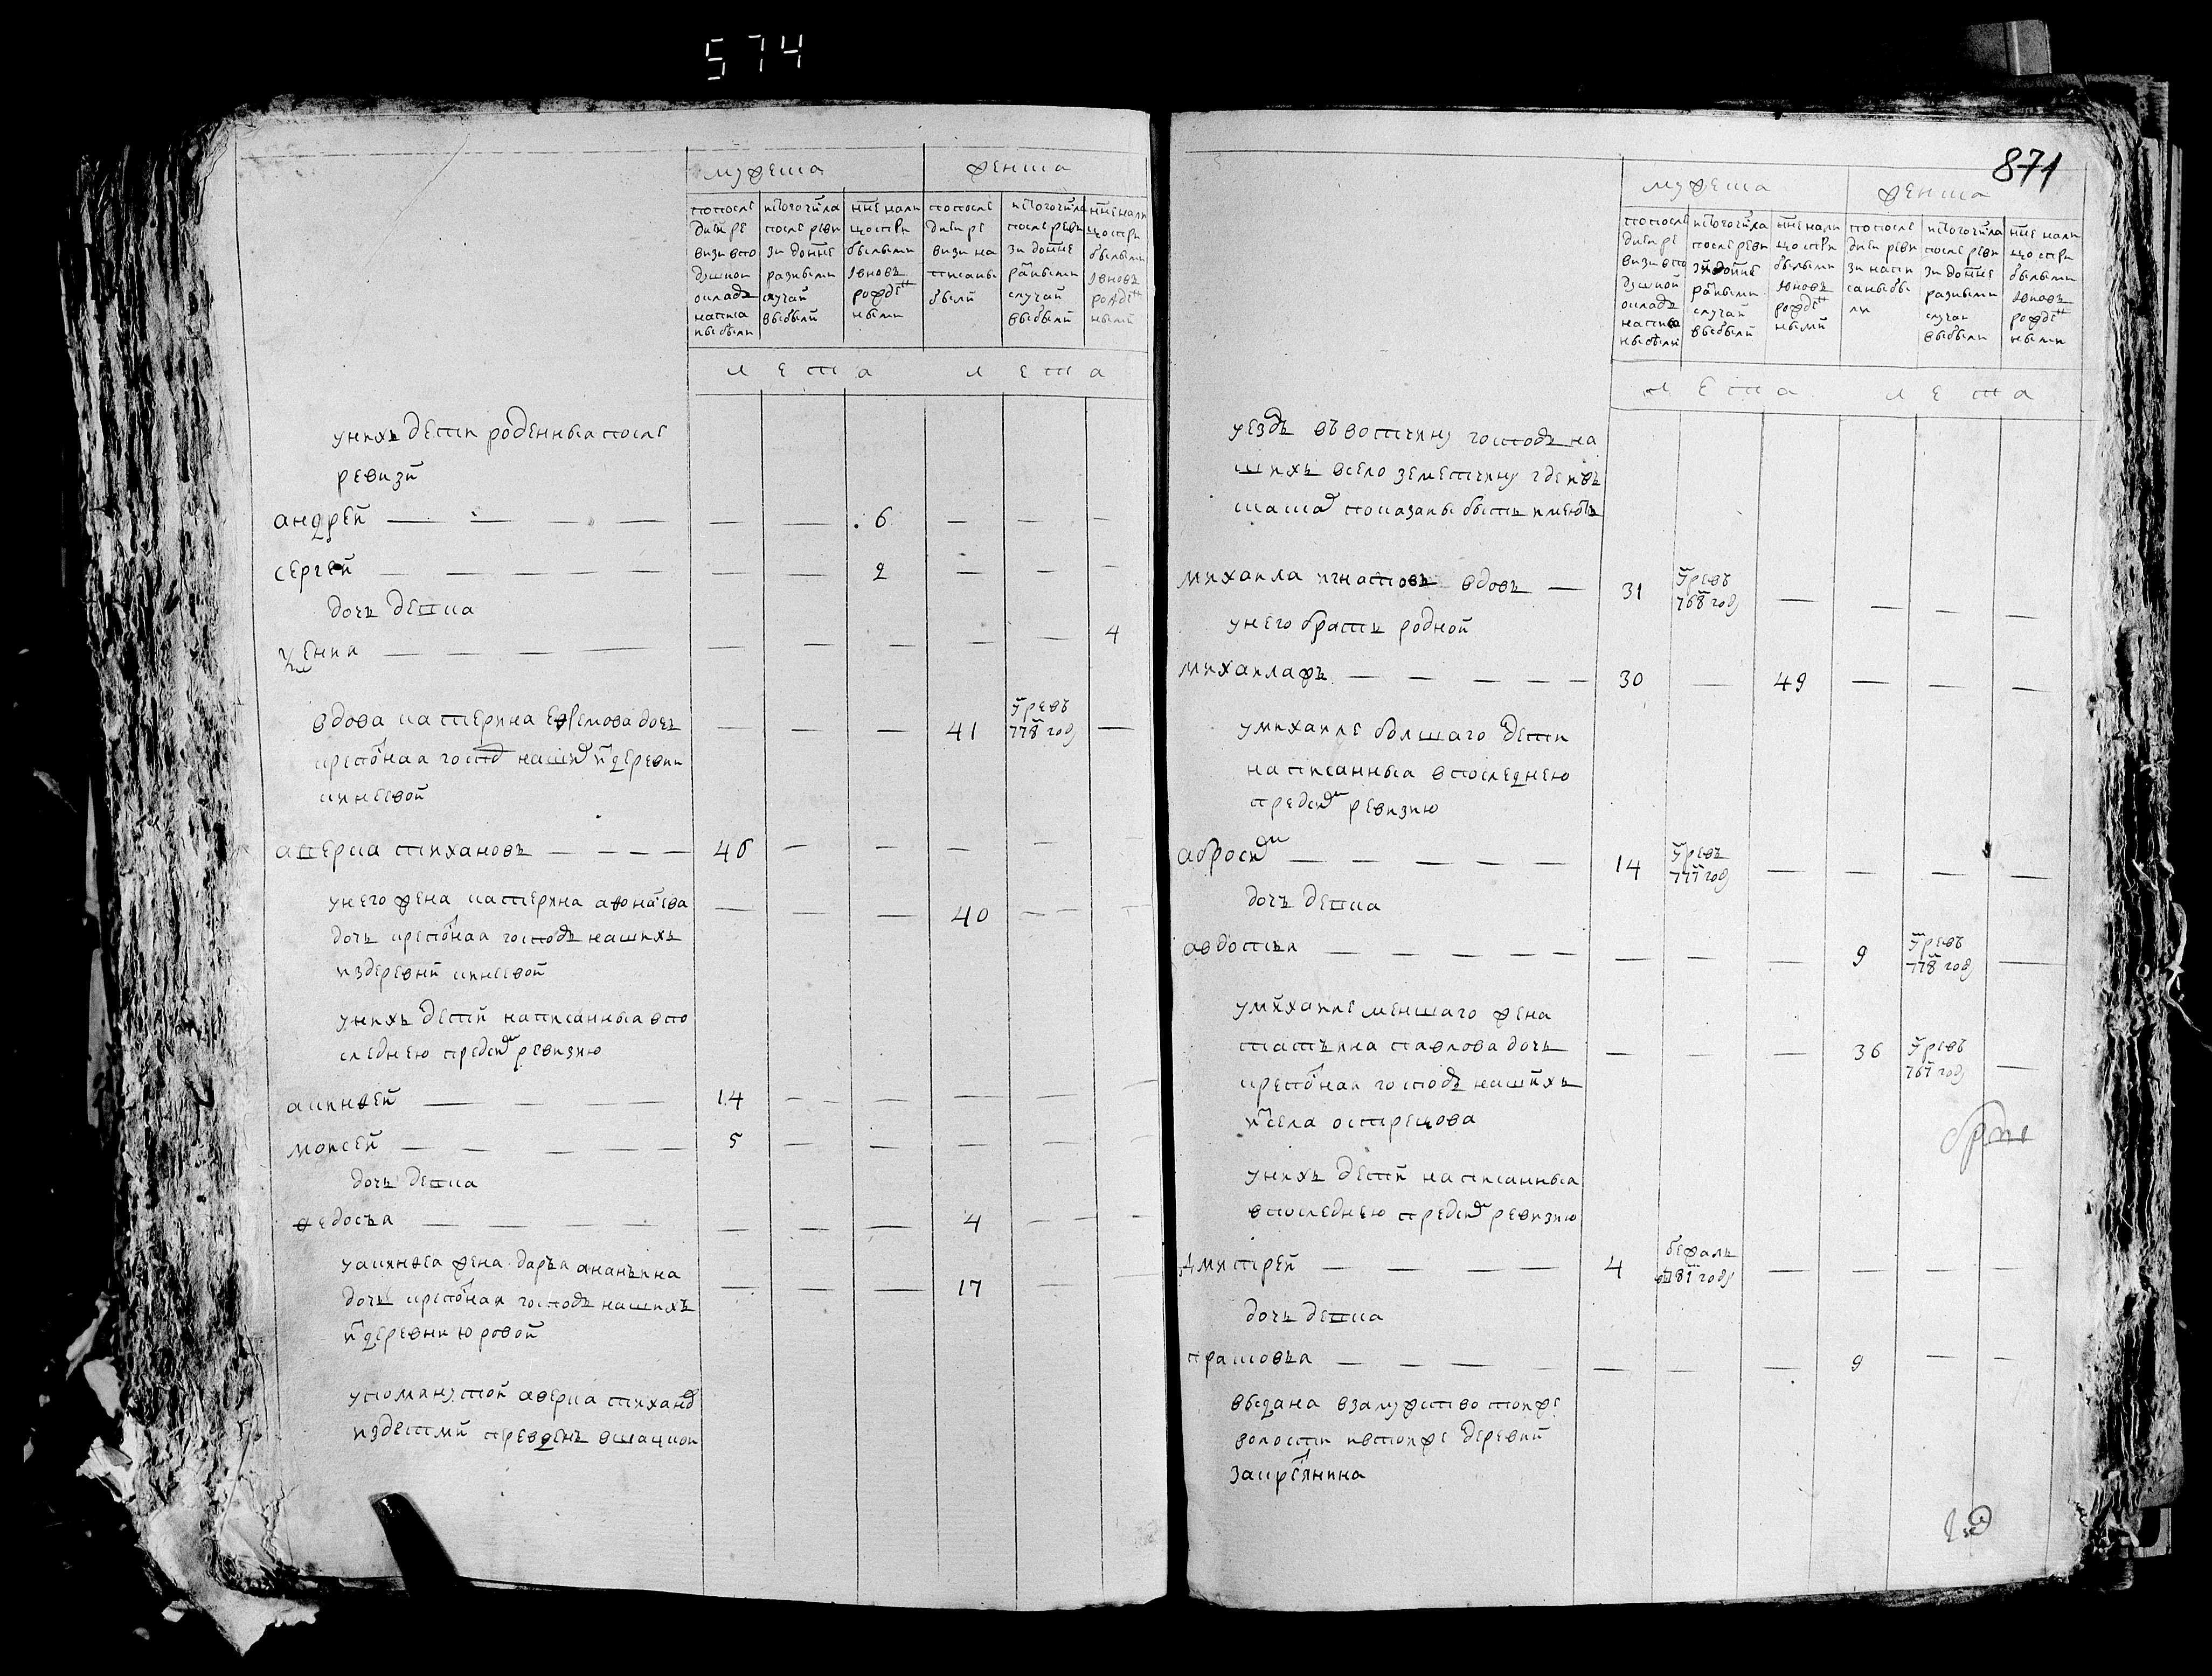 574
871
мужеска
женска
по последней ревизи в подушной окладъ написаны были
ис того числа после ревизи до нне разными случаи выбыли
нне на лицо с прибылыми и вновь рожденными
по последней ревизи написаны были
ис того числа после ревизи до нне разными случаи выбыли
нне на лицо с прибылыми и вновь рожденными
лета
лета
у нихъ дети рожденныя после
ревизи
андрей — — — — — — 6 — — —
сергей — — — — — — 2 — — —
дочь девка
— — — — — — — — — 4
вдова катерина ефремова дочь — — — 41 умре въ 778 году —
крестьнская госпд нашихъ из деревни
аверка тихановъ — — — 46 — — — — —
у него жена катерина афонасева — — — 40 — — —
дочь крестьнская господъ нашихъ
из деревни
у нихъ дети написанныя в по
следнею пред сим ревизию
акинфей — — — — 14 — — — — —
мокей — — — — — 5 — — — — —
дочь девка
федосья — — — — — — — 4 — — —
у акинфея жена дарья ананьина — — — 17 — —
дочь крестьнская господъ нашихъ
из деревни юровой
упоманутой аверка тихановъ
из детми преведенъ в шацкой
мужеска
женска
по последней ревизи в подушной окладъ написаны были
ис того числа после ревизи до нне разными случаи выбыли
нне на лицо с прибылыми и вновь рожденными
по последней ревизи написаны были
ис того числа после ревизи до нне разными случаи выбыли
нне на лицо с прибылыми и вновь рожденными
лета
лета
уездъ въ вотчину господъ на
шихъ в село земетчину где и въ
показаны быть имеютъ
михаила игнатовъ вдовъ — 31 умре въ 768 году — — — —
у него братъ родной
михаила жъ — — — — — 30 — 49 — — —
у михаиле болшаго дети
написанныя в последнею
пред сим ревизию
абросим — — — — — 14 умре въ 777 году — — — —
дочь девка
авдотья — — — — — — — — 9 умре въ 778 году —
у михаиле меншаго жена
татьяна павлова дочь — — — 36 умре въ 767 году —
крестьнская господъ нашихъ
из села острецова
у нихъ дети написанныя
в последнею пред сим ревизию
дмитрей — — — — 4 бежалъ въ 781 году — — — —
дочь девка
прасковья — — — — — — — 9 — —
выдана в замужство той же
волости и в той же деревни
за крестьянина